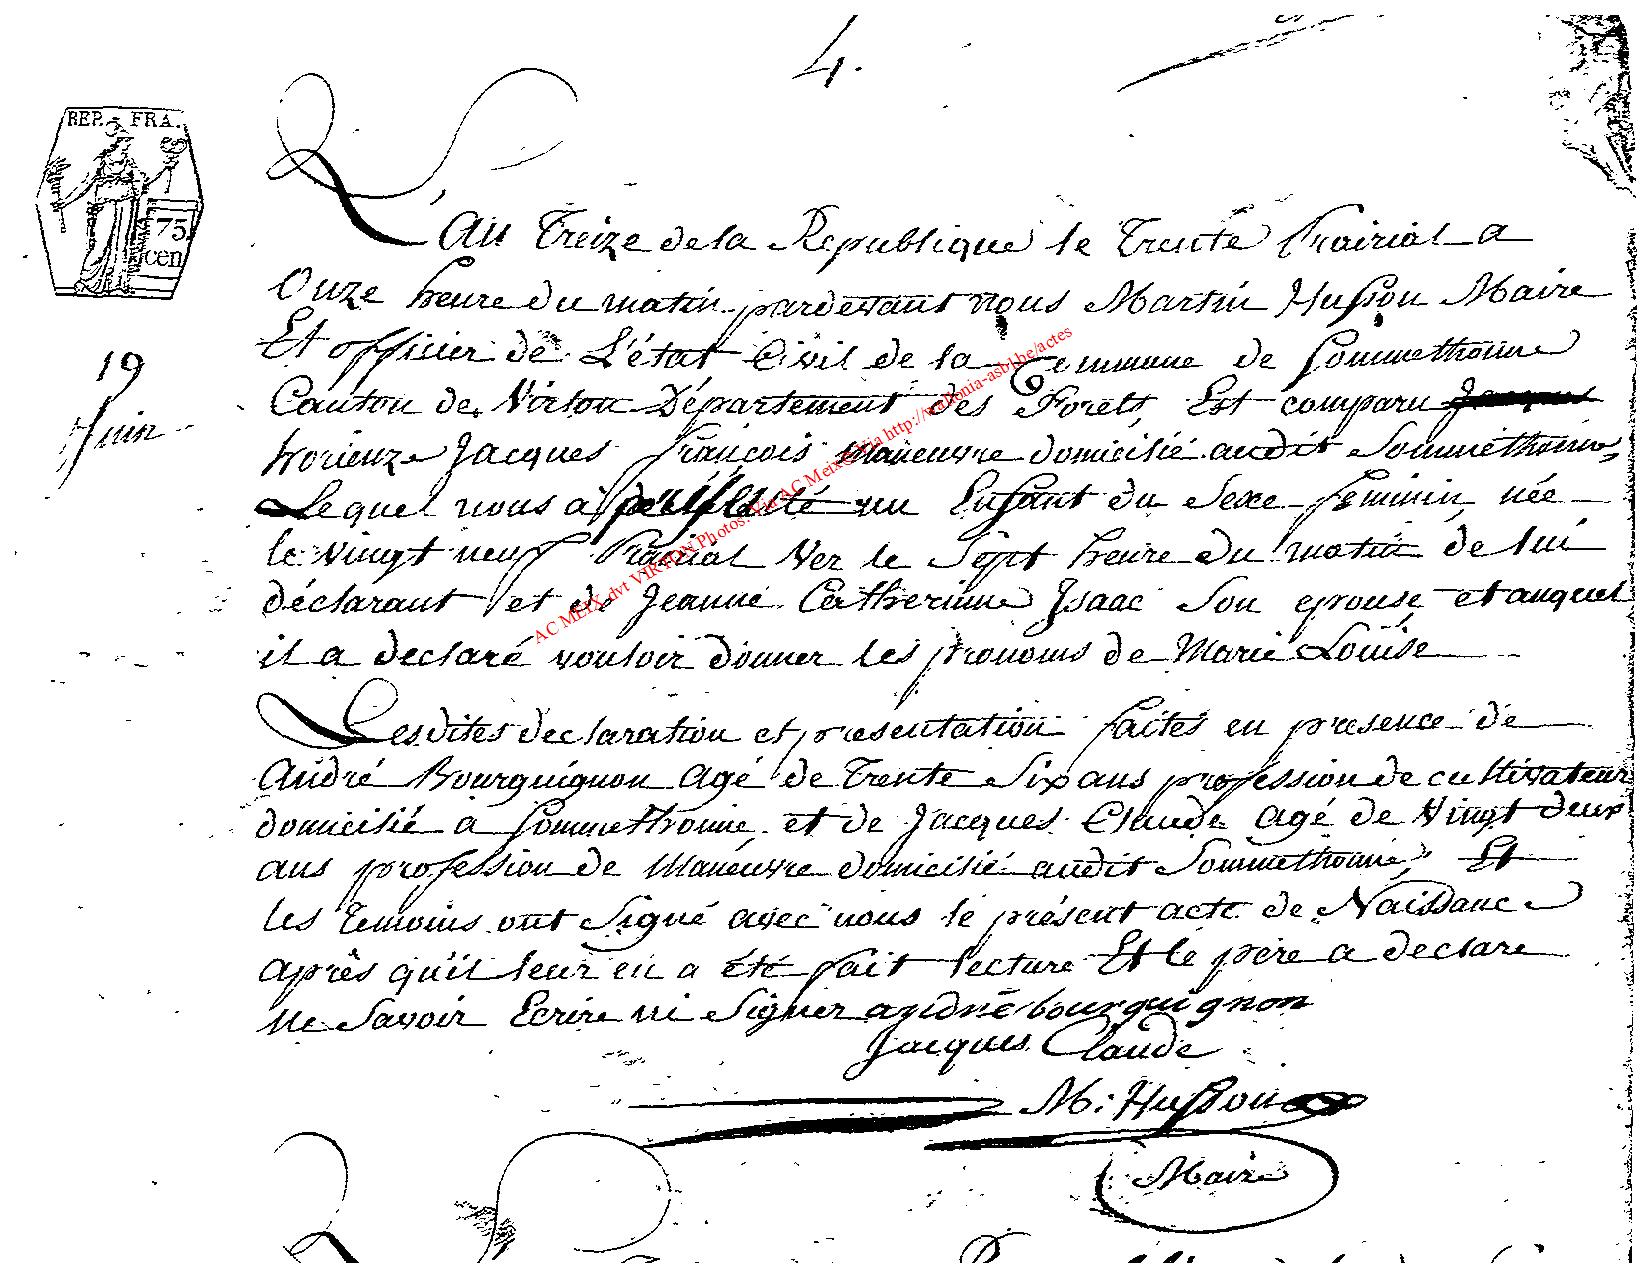 4.
REP. FRA.
75
cen
19
Juin
L'an Treize de la Republique le Trente Prairial a
Onze heure du matin pardevant nous Martin Husson Maire
Et officier de L'état Civil de la Commune de Sommethonne
Canton de Virton Département des Forets, Est comparu
Jacques François Maneuvre domicilié audit Sommethonne,
Lequel nous a un Enfant du Sexe feminin, née
le vingt neuf Prairial Ver le Sept heure du matin de lui
déclarant et de Jeanne Catherinne Isaac Son epouse et auquel
il a declaré vouloir donner les pronoms de Marie Louise
Lesdites declaration et presentation faites en presence de
André Bourguignon agé de Trente Six ans profession de cultivateur
domicilié a Sommethonne et de Jacques Claude agé de Vingt deux
ans profession de Maneuvre domicilié audit Sommethonne, Et
les temoins ont Signé avec nous le présent acte de Naissance
après qu'il leur en a été fait lecture Et le père a declare
Ne Savoir Ecrire ni Signer andré bourguignon
Jacques Claude
M: Husson
Maire
AC MEIX-dvt VIRTON Photos: via AC Meix via http://wallonia-asbl.be/actes